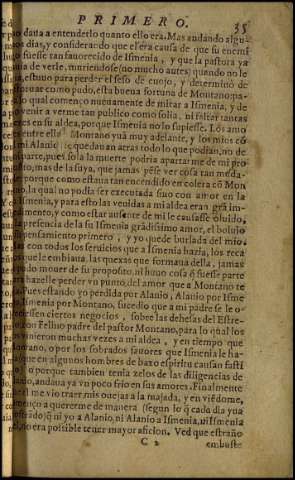 PRIMERO. 25
pso daua a entenderlo quanto ello era. Mas andando algu
nos dias, y considerãdo que el era causa de que su enemi
go fuesse tan fauorecido de Ismenia, y que la pastora ya
de verle, muriendose (no mucho antes) quando no le
estuuo para perder el seso de enojo, y determinó de
como pudo, esta buena fortuna de Montano
lo qual començo nueuamente de mirar a Ismenia, y de
venir a verme tan publico como solia, ni faltar tantas
en su aldea, porque Ismenia no lo supiesse. Los amo
entre ella y Montano yuã muy adelante, y los mios cõ
mi Alanio se quedauan atras todo lo que podian, no de
parte, pues sola la muerte podria apartarme de mi pro
mas de la suya, que jamas pẽse ver cosa tan muda
porque como estaua tan encendido en colera cõ Mon
la qual no podia ser executada sino con amor en la
Ismenia, y para esto las venidas a mi aldea eran grã im
y como estar ausente de mi le causasse oluido,
la presencia de la su Ismenia grãdissimo amor, el boluio
pensamiento primero, y yo quede burlada del mio.
con todos los seruicios que a Ismenia hazia, los reca
que le embiaua, las quexas que formaua della, jamas
pudo mouer de su proposito, ni huuo cosa q̃ fuesse parte
hazelle perder vn punto, del amor que a Montano te
Pues estando yo perdida por Alanio, Alanio por Isme
Ismenia por Montano, sucedio que a mi padre se le o
ciertos negocios, sobre las dehesas del Estre
con Felino padre del pastor Montano, para lo qual los
vinieron muchas vezes a mi aldea, y en tiempo que
o por los sobrados fauores que Ismenia le ha
que en algunos hombres de baxo espiritu causan fasti
o porque tambien tenia zelos de las diligencias de
andaua ya vn poco frio en sus amores. Finalmente
el me vio traer mis ouejas a la majada, y en viẽdome,
començo a quererme de manera (segun lo q̃ cada dia yua
q̃ ni yo a Alanio, ni Alanio a Ismenia, ni Ismenia
no era possible tener mayor aficion. Ved que estraño
C 2 embuste